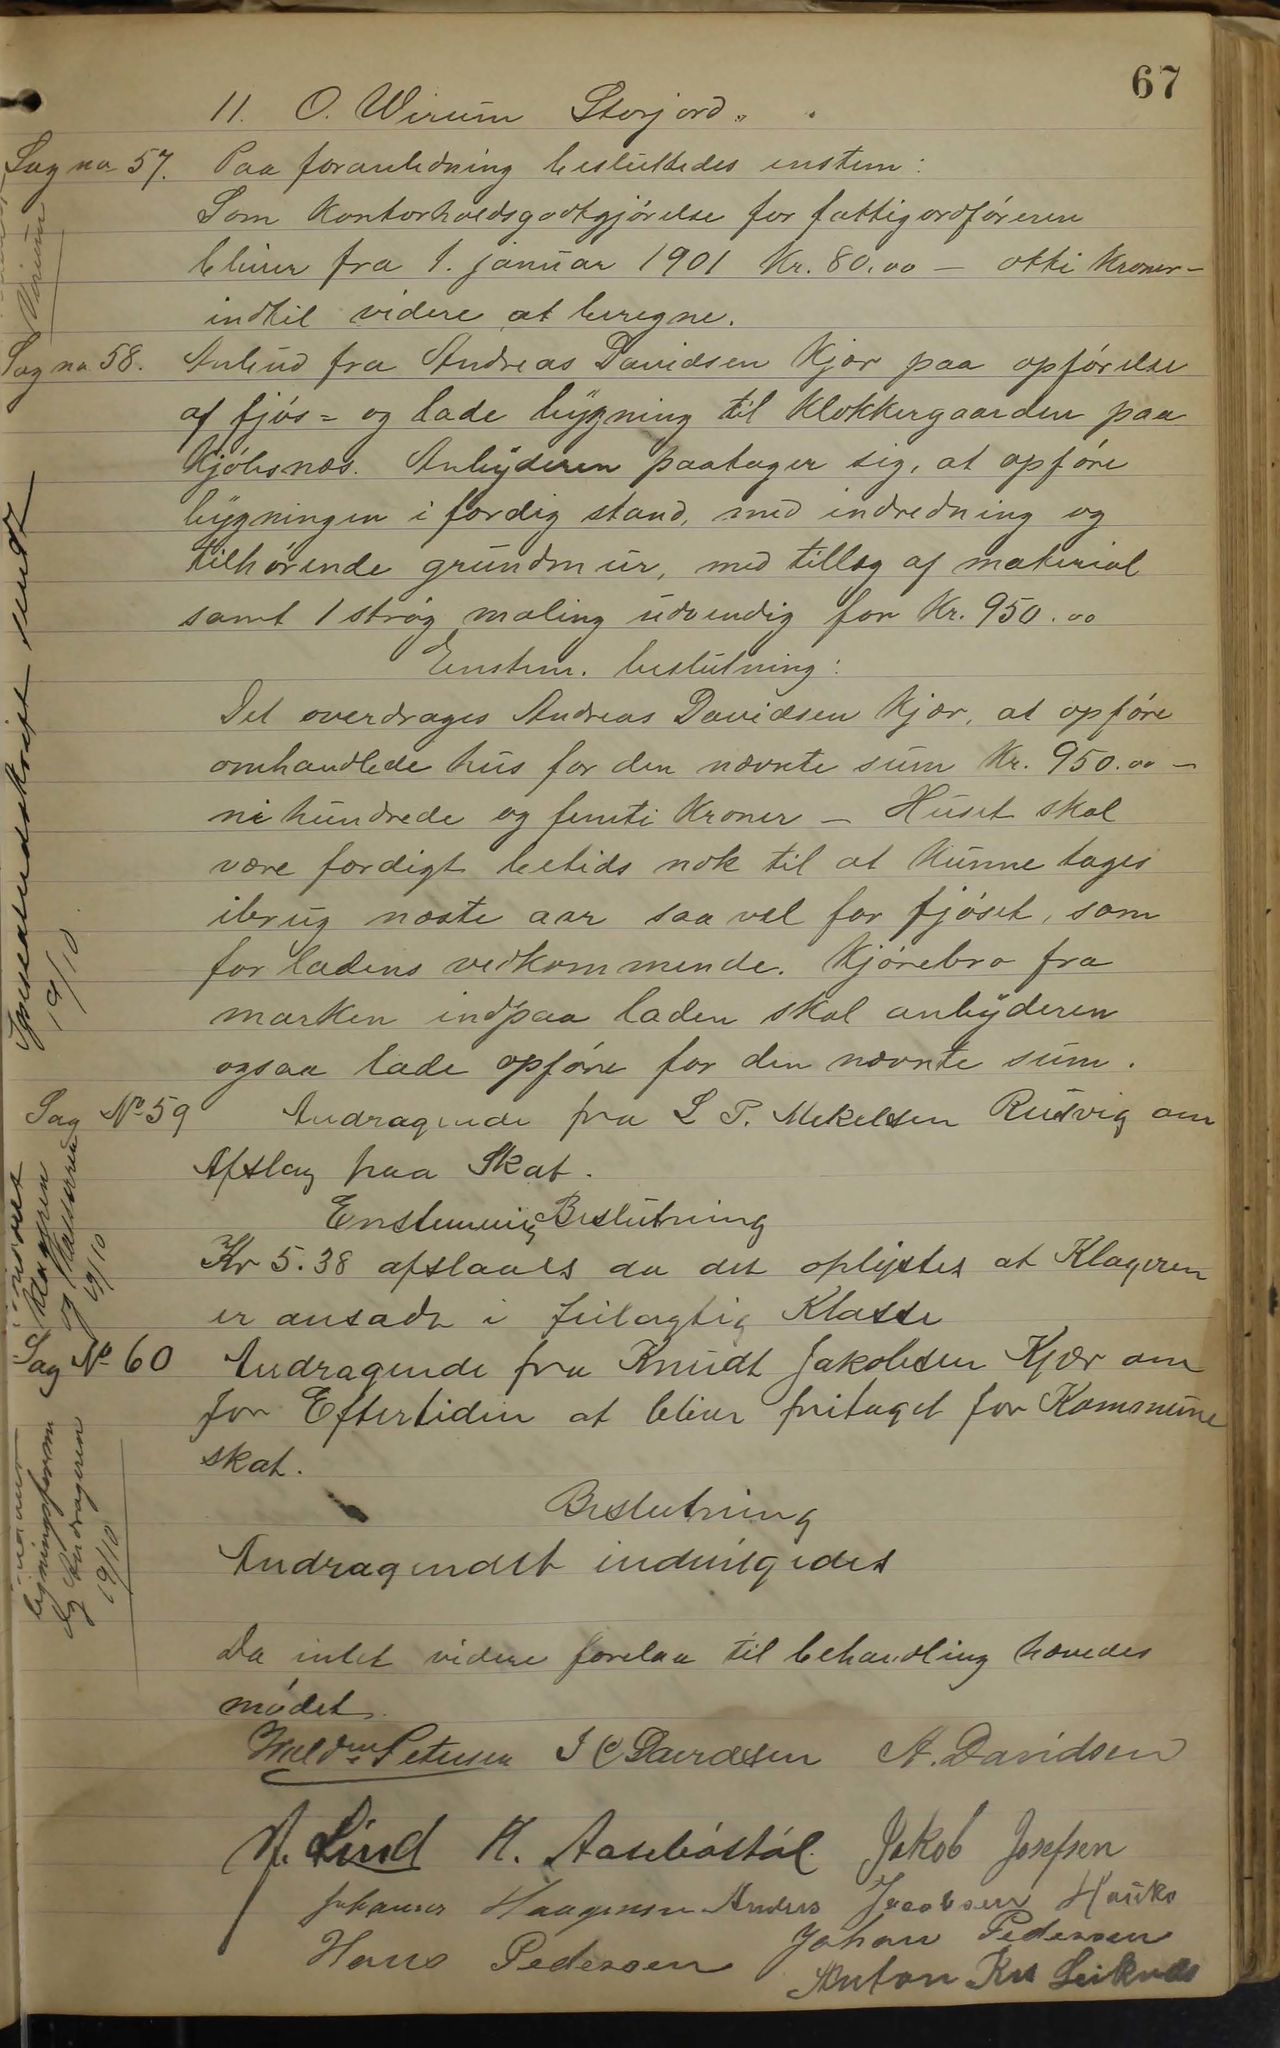 67
11. O. Wirum Storjord „ „
Sag no 57. Paa foranledning besluttedes enstem:
Som Kontorholdsgodtgjørelse for fattigordføreren
bliver fra 1. januar 1901 Kr. 80,00 — otti Kroner —
indtil videre at beregne.
Wirum
Sag no 58. Anbud fra Andreas Davidsen Kjær paa opførelse
af fjøs = og lade bygning til Klokkergaarden paa
Kjøbsnæs. Anbyderen paatager sig, at opføre
bygningen i færdig stand, med indredning og
tilhørende grundmur, med tillæg af material
samt 1 strøg maling udvendig for Kr. 950.00
Enstem. beslutning:
Det overdrages Andreas Davidsen Kjær, at opføre
omhandlede hus for den nævnte sum Kr. 950.00 —
ni hundrede og femti Kroner — Huset skal
være færdigt betids nok til at kunne tages
ibrug næste aar saa vel for fjøset, som
for ladens vedkommende. Kjørebro fra
marken indpaa laden skal anbyderen
ogsaa lade opføre for den nævnte sum.
sendt
19/10
Sag No 59 Andragende fra L P. Mekelsen Rusvig om
Afslag paa Skat.
Enstemmig Beslutning
Kr 5.38 afslaaes da det oplystes at Klageren
er ansadt i feilagtig Klasse
Klageren
og Kasserer
19/10
Sag No 60 Andragende fra Knudt Jakobsen Kjær om
for Eftertiden at bliver fritaget for Kommune
skat.
Beslutning
Andragendet indvilgedes
ligningsform
og Andrageren
19/10
Da intet videre forelaa til behandling hævedes
mødet.
Waldm Petersen I C Davidsen A. Davidsen
A. Lind K. Aasebøstøl. Jakob Josefsen
Johannes Haagensen Anders Jacobsen Hauko
Hans Pedersen Johan Pedersen
Anton Leiknes